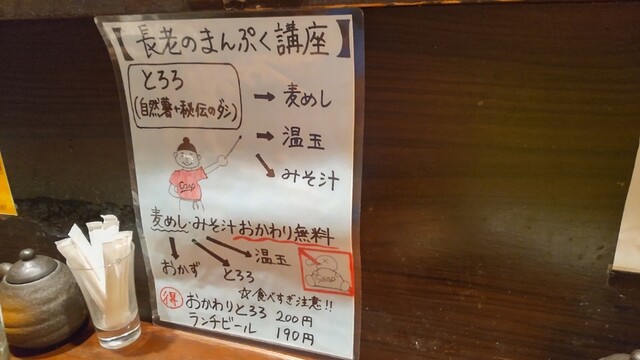 【長老のまんぷく講座】
とろろ
(自然薯+秘伝のダシ)
→ 麦めし
→ 温玉
→ みそ汁
麦めし・みそ汁おかわり無料
おかず
とろろ
温玉
☆食べすぎ注意!!
得 おかわりとろろ 200円
ランチビール 190円